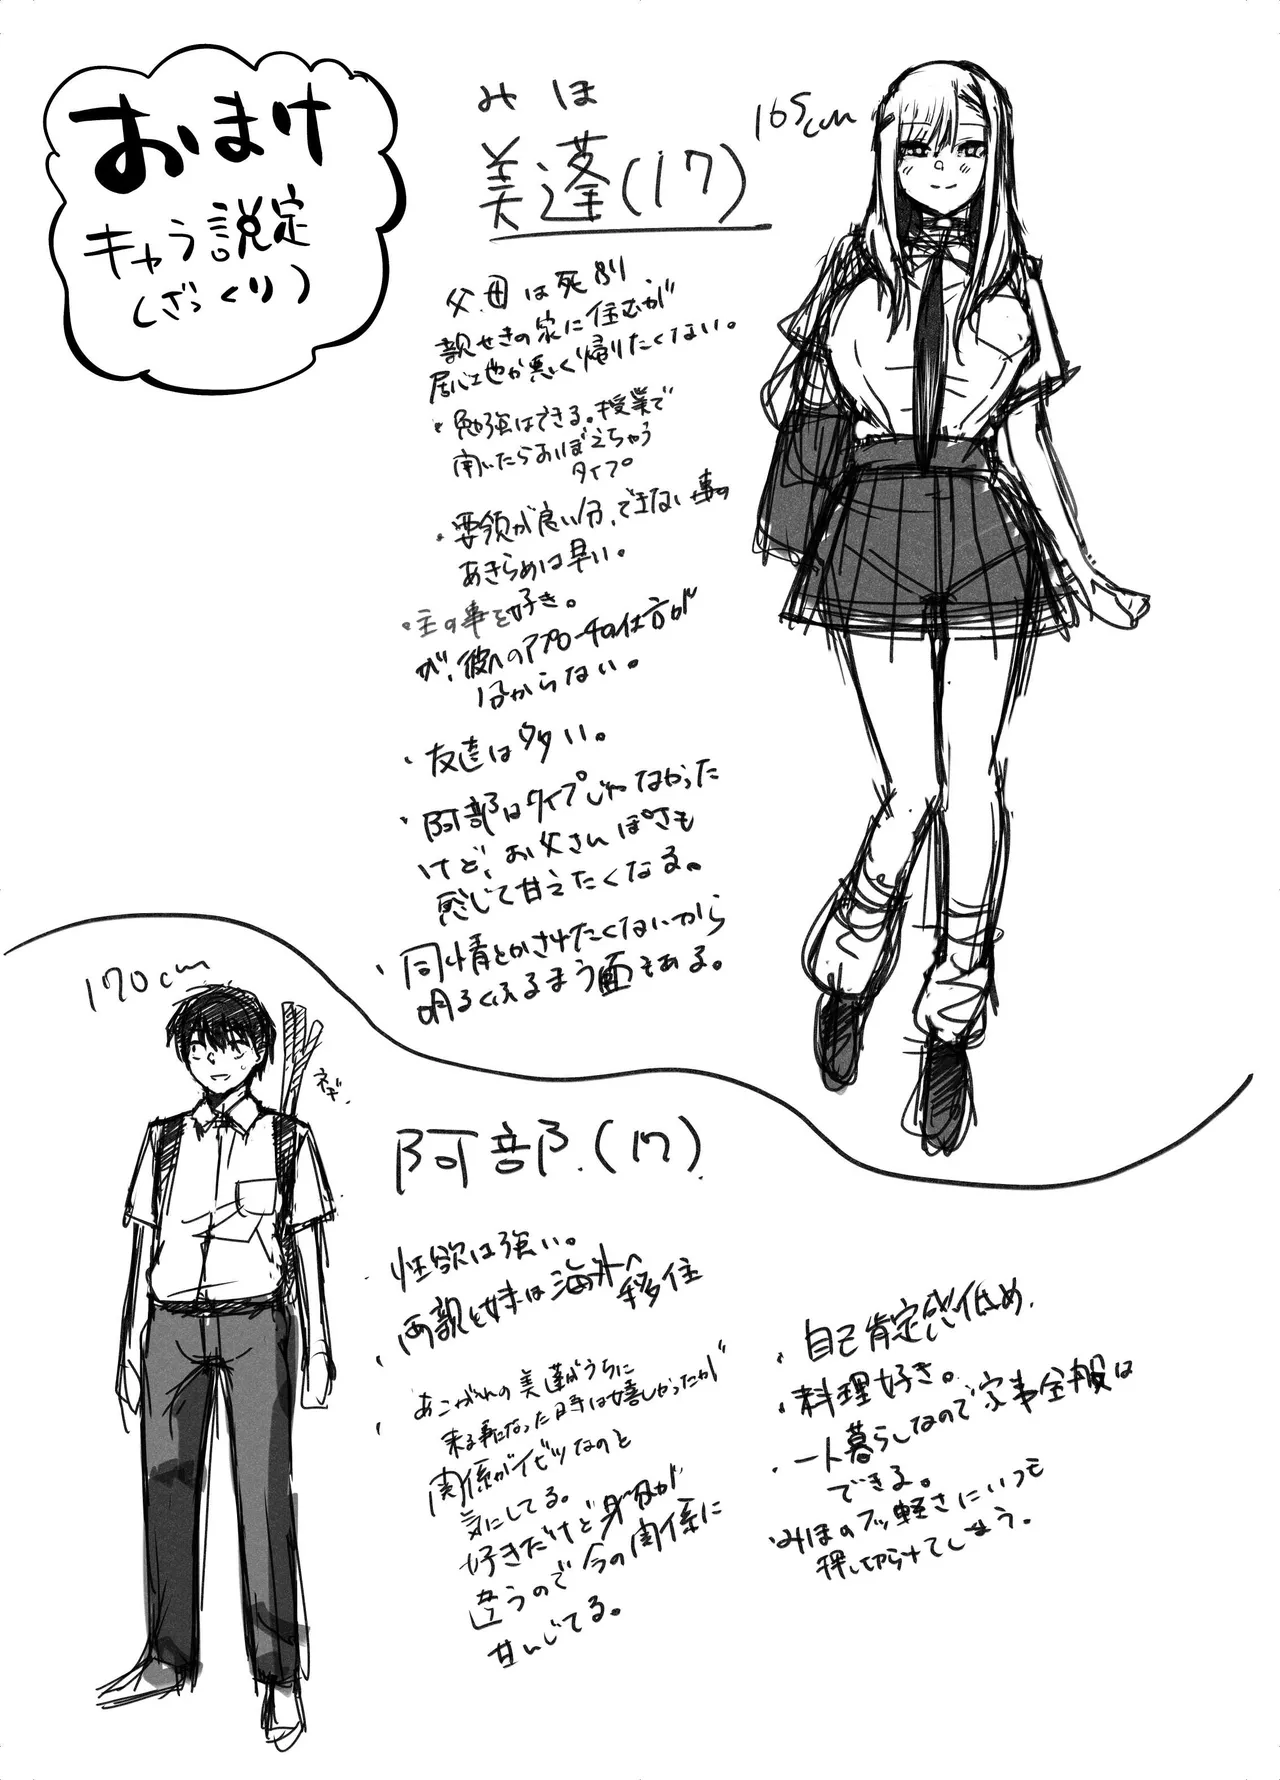 おまけ
キャラ設定
(ざっくり)
みほ
美蓬(17)
165cm
父母は死別
親せきの家に住むが
居心地が悪く帰りたくない。
・勉強はできる。授業で
聞いたらおぼえちゃう
タイプ
・要領が良い分、できない事の
あきらめは早い。
・主の事を好き。
が、彼へのアプローチの仕方が
分からない。
・友達は多い。
・阿部はタイプじゃなかった
けど、お父さんぽさも
感じて甘えたくなる。
・同情とかされたくないから
明るくふるまう面もある。
170cm
ネギ
阿部(17)
・性欲は強い。
・両親と妹は海外へ移住
・あこがれの美蓬がうちに
来る事になった時は嬉しかったが
関係がイビツなのと
気にしてる。
好きだけど身分が
違うので今の関係に
甘んじてる。
・自己肯定感低め。
・料理好き。
・一人暮らしなので家事全般は
できる。
・みほのフッ軽さにいつも
押し切られてしまう。